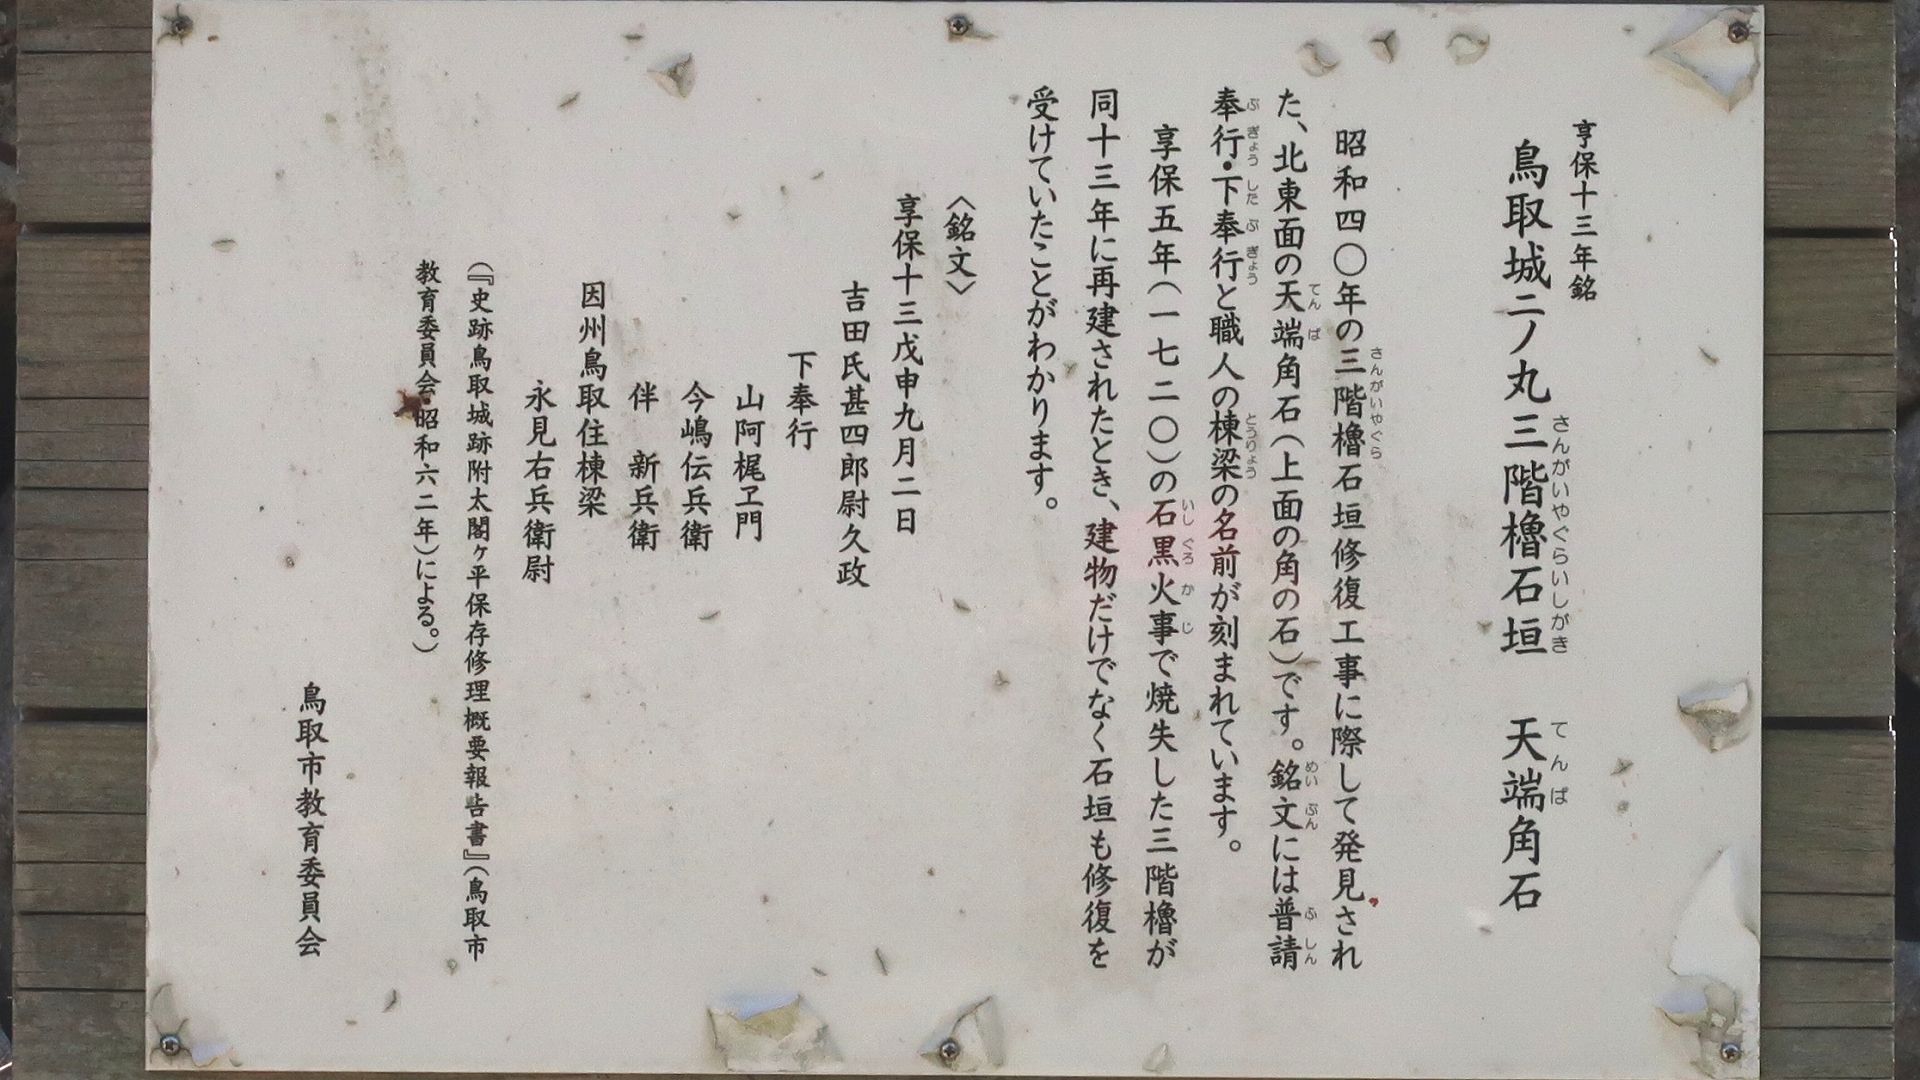 亨保十三年銘
鳥取城二ノ丸三階櫓石垣　天端角石
さんがいやぐらいしがき　てんば
昭和四〇年の三階櫓石垣修復工事に際して発見され
さんがいやぐら
た、北東面の天端角石（上面の角の石）です。銘文には普請
てんば　めいぶん　ふしん
奉行・下奉行と職人の棟梁の名前が刻まれています。
ぶぎょう　したぶぎょう　とうりょう
享保五年（一七二〇）の石黒火事で焼失した三階櫓が
いしぐろかじ
同十三年に再建されたとき、建物だけでなく石垣も修復を
受けていたことがわかります。
〈銘文〉
享保十三戊申九月二日
吉田氏甚四郎尉久政
下奉行
山阿梶ヱ門
今嶋伝兵衛
伴　新兵衛
因州鳥取住棟梁
永見右兵衛尉
（『史跡鳥取城跡附太閤ヶ平保存修理概要報告書』（鳥取市
教育委員会・昭和六二年）による。）
鳥取市教育委員会